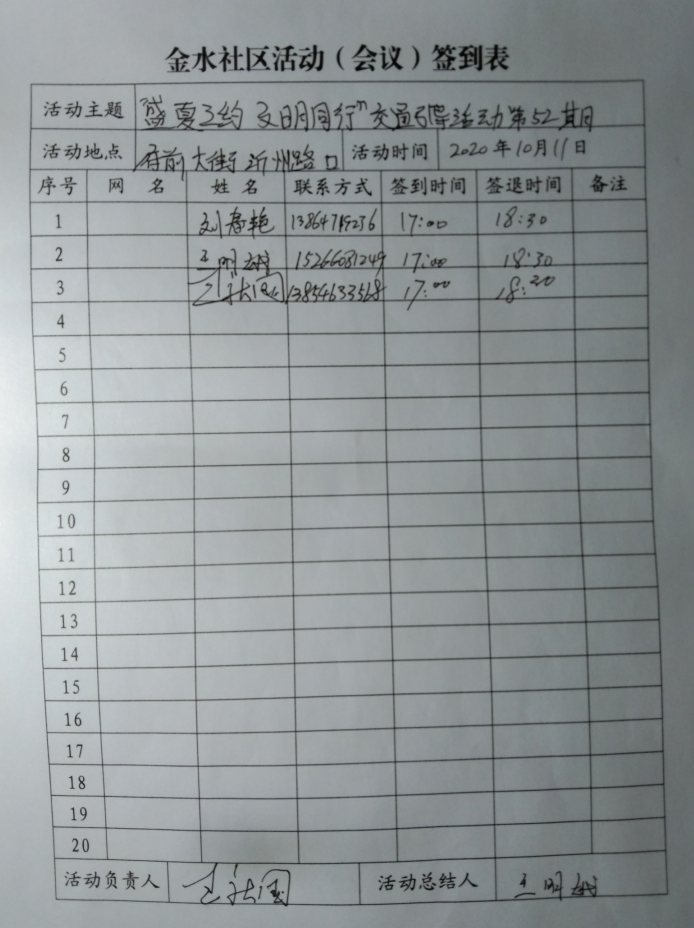 金水社区活动（会议）签到表
活动主题 "盛夏之约 文明同行"交通引导活动第52期
活动地点 府前大街沂州路口 活动时间 2020年10月11日
序号 网名 姓名 联系方式 签到时间 签退时间 备注
1 刘春艳 17:00 18:30
2 王明 15266081249 17:00 18:30
3 王 13854633568 17:00 18:30
4
5
6
7
8
9
10
11
12
13
14
15
16
17
18
19
20
活动负责人 王 国 活动总结人 王明